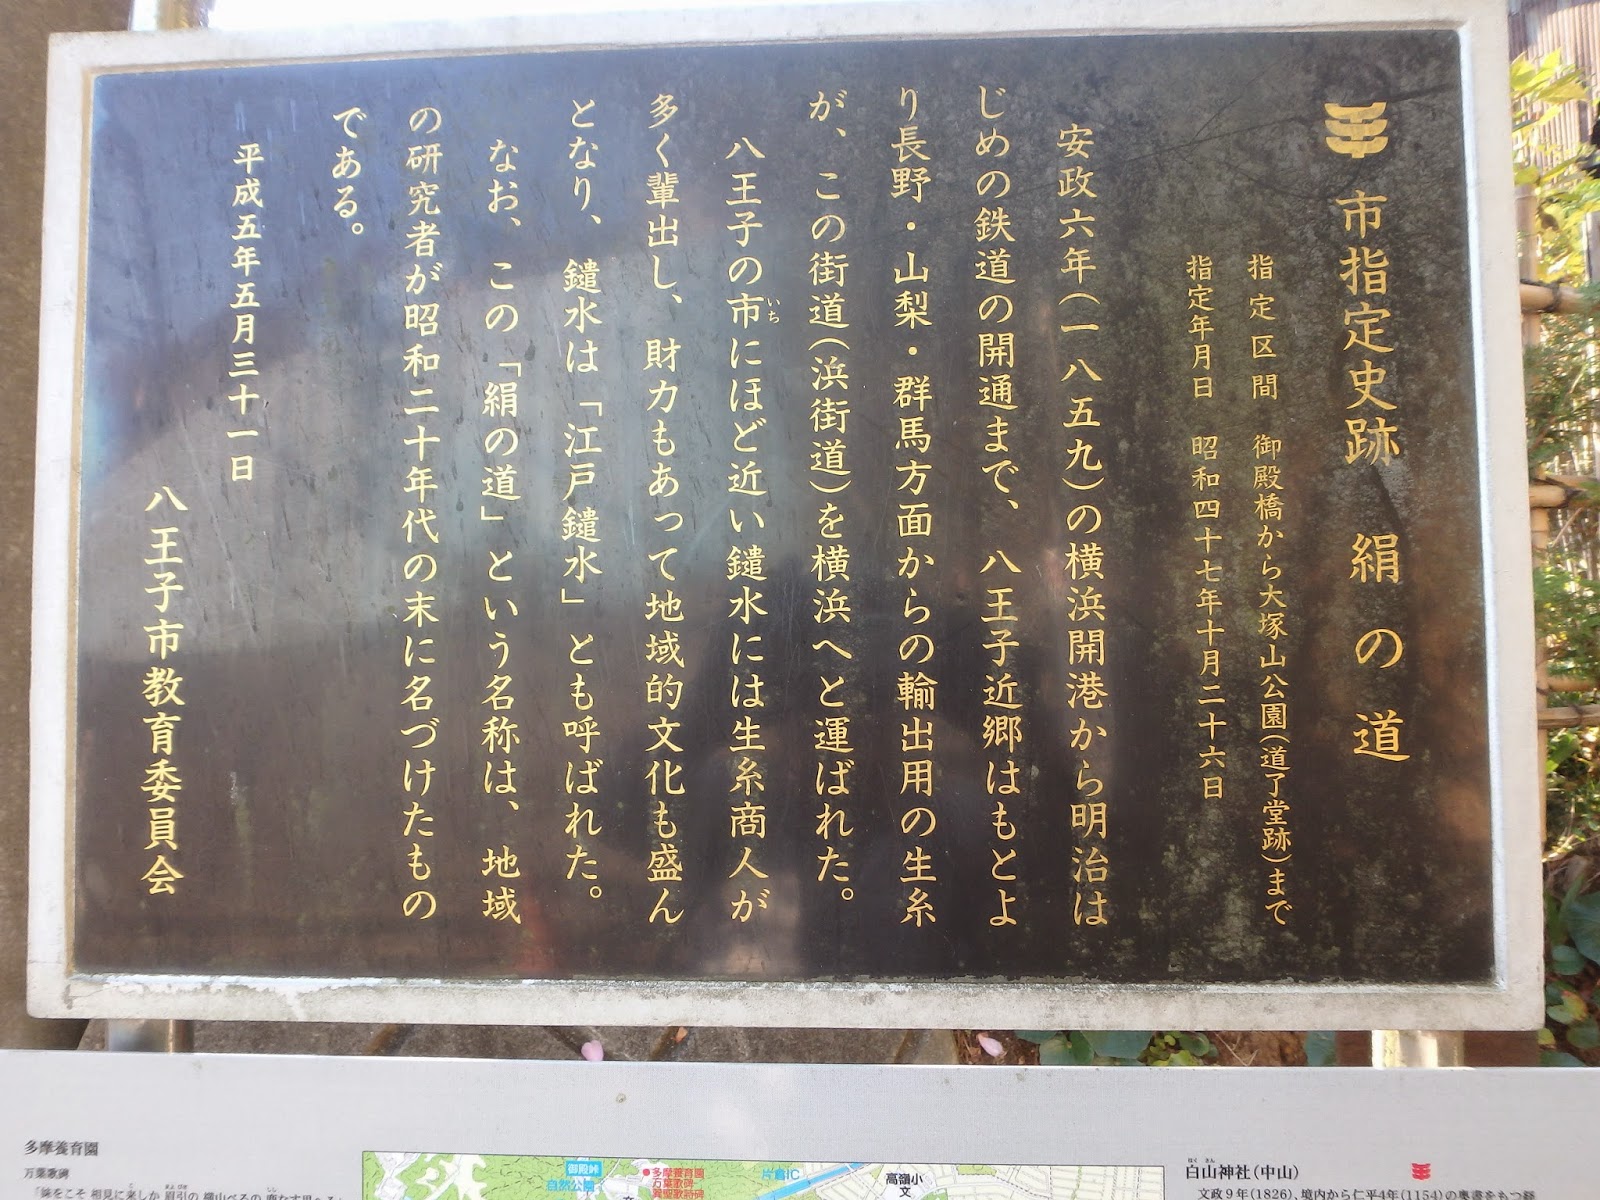 市指定史跡 絹の道
指定区間 御殿橋から大塚山公園(道了堂跡)まで
指定年月日 昭和四十七年十月二十六日
安政六年(一八五九)の横浜開港から明治は
じめの鉄道の開通まで、八王子近郷はもとよ
り長野・山梨・群馬方面からの輸出用の生糸
が、この街道(浜街道)を横浜へと運ばれた。
八王子の市にほど近い鑓水には生糸商人が
いち
多く輩出し、財力もあって地域的文化も盛ん
となり、鑓水は「江戸鑓水」とも呼ばれた。
なお、この「絹の道」という名称は、地域
の研究者が昭和二十年代の末に名づけたもの
である。
平成五年五月三十一日
八王子市教育委員会
多摩養育園
万葉歌碑
御殿峠
自然公園
多摩養育園
万葉歌碑
片倉IC
高嶺小
文
白山神社(中山)
はく さん
文政9年(1826)、境内から仁平4年(1154)の奥書をもつ経